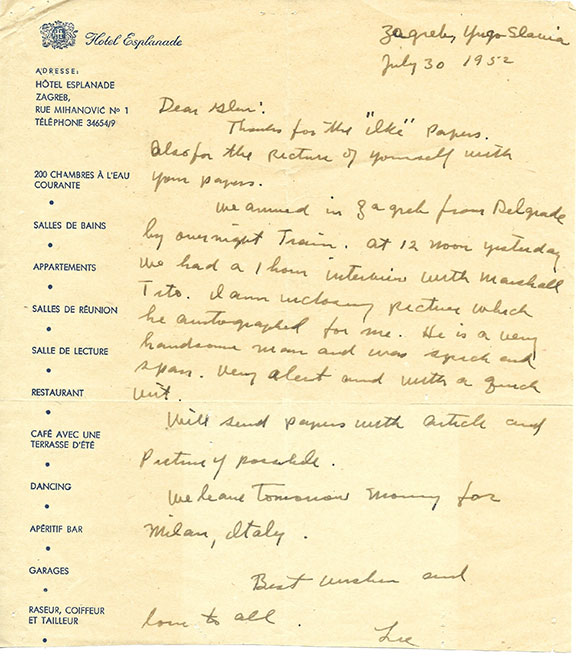 Hotel Esplanade
ADRESSE:
HÔTEL ESPLANADE
ZAGREB,
RUE MIHANOVIĆ Nº 1
TÉLÉPHONE 34654/9
200 CHAMBRES À L'EAU
COURANTE
SALLES DE BAINS
APPARTEMENTS
SALLES DE RÉUNION
SALLE DE LECTURE
RESTAURANT
CAFÉ AVEC UNE
TERRASSE D'ÉTÉ
DANCING
APÉRITIF BAR
GARAGES
RASEUR, COIFFEUR
ET TAILLEUR
Zagreb, Yugo Slavia
July 30 1952
Dear
Thanks for the "ilke" papers.
Also for the picture of yourself with
your papers.
We arrived in Zagreb from Belgrade
by overnight Train. At 12 noon yesterday
we had a 1 hour interview with Marshall
Tito. I am inclosing picture which
he autographed for me. He is a very
handsome man and was spick and
span. Very alert and with a quick
wit.
Will send papers with article and
Picture if possible.
We leave Tomorrow morning for
Milan, Italy.
Best wishes and
love to all.
Lee